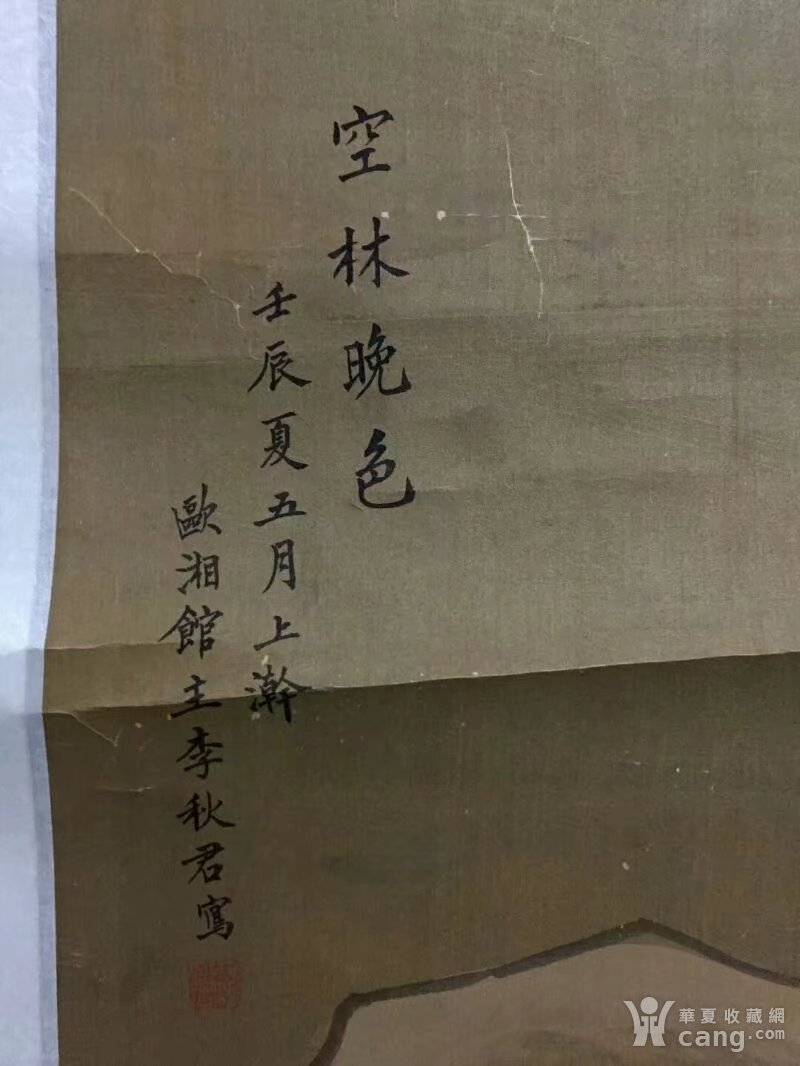 空林晚色
壬辰夏五月上澣
歐湘館主李秋君寫
華夏收藏網
cang.com